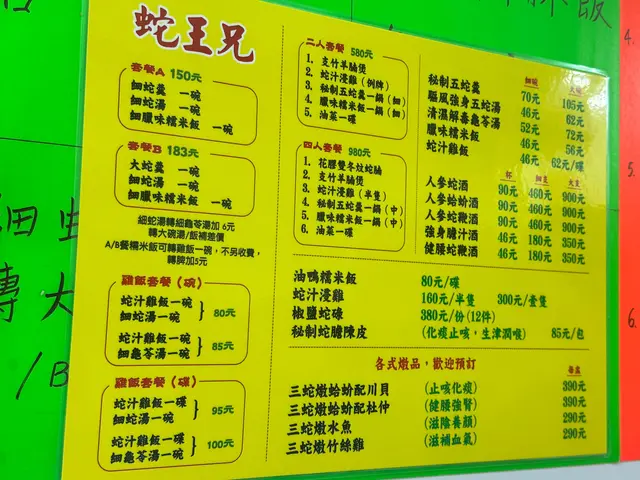 蛇王兄
套餐A 150元
細蛇羹 一碗
細蛇湯 一碗
細臘味糯米飯 一碗
套餐B 183元
大蛇羹 一碗
細蛇湯 一碗
細臘味糯米飯 一碗
細蛇湯轉細龜苓湯加 6元
轉大碗湯/飯補差價
A/B餐糯米飯可轉雞飯一碗,不另收費,
轉脾加5元
雞飯套餐(碗)
蛇汁雞飯一碗
細蛇湯一碗
80元
蛇汁雞飯一碗
細龜苓湯一碗
85元
雞飯套餐(碟)
蛇汁雞飯一碟
細蛇湯一碗
95元
蛇汁雞飯一碟
細龜苓湯一碗
100元
二人套餐 580元
1. 支竹羊腩煲
2. 蛇汁浸雞(例牌)
3. 秘制五蛇羹一鍋(細)
4. 臘味糯米飯一鍋(細)
5. 油菜一碟
四人套餐 980元
1. 花膠雙冬炆蛇腩
2. 支竹羊腩煲
3. 蛇汁浸雞(半隻)
4. 秘制五蛇羹一鍋(中)
5. 臘味糯米飯一鍋(中)
6. 油菜一碟
細碗 大碗
秘制五蛇羹 70元 105元
驅風強身五蛇湯 46元 62元
清濕解毒龜苓湯 52元 72元
臘味糯米飯 46元 56元
蛇汁雞飯 46元 62元/碟
杯 細支 大支
人參蛇酒 90元 460元 900元
人參蛤蚧酒 90元 460元 900元
人參蛇鞭酒 90元 460元 900元
強身膽汁酒 46元 180元 350元
健腰蛇鞭酒 46元 180元 350元
油鴨糯米飯 80元/碟
蛇汁浸雞 160元/半隻 300元/壹隻
椒鹽蛇碌 380元/份(12件)
秘制蛇膽陳皮 (化痰止咳,生津潤喉) 85元/包
各式燉品,歡迎預訂
每盅
三蛇燉蛤蚧配川貝 (止咳化痰) 390元
三蛇燉蛤蚧配杜仲 (健腰強腎) 390元
三蛇燉水魚 (滋陰養顏) 290元
三蛇燉竹絲雞 (滋補血氣) 290元
細
轉大
/B
飯
4.
5.
6.